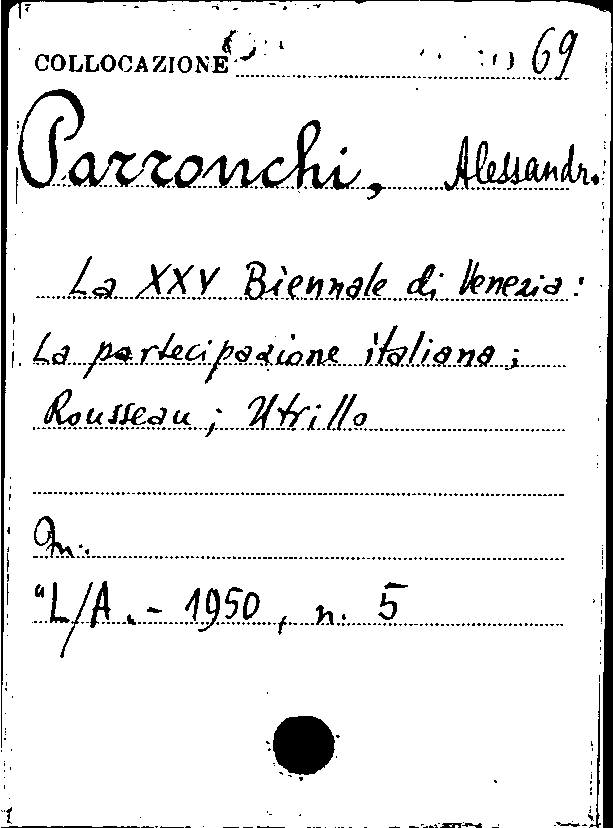 COLLOCAZIONE 69
Parronchi, Alessandr.
La XXV Biennale di Venezia:
La partecipazione italiana;
Rousseau; Utrillo
In:
"L/A. - 1950, n. 5